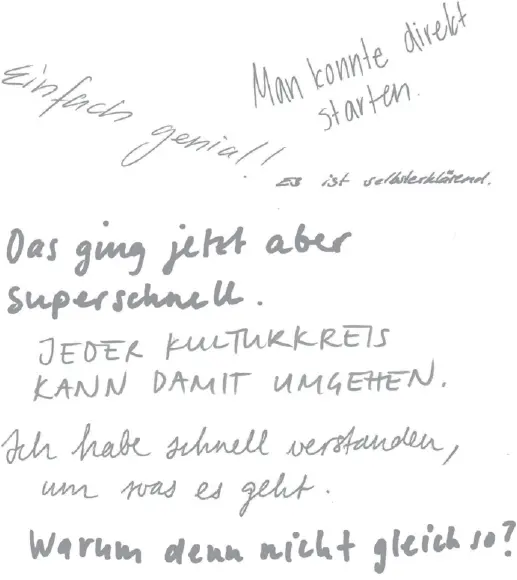 Einfach genial!
Man konnte direkt
starten.
Es ist selbsterklärend.
Das ging jetzt aber
superschnell.
JEDER KULTURKREIS
KANN DAMIT UMGEHEN.
Ich habe schnell verstanden,
um was es geht.
Warum denn nicht gleich so?